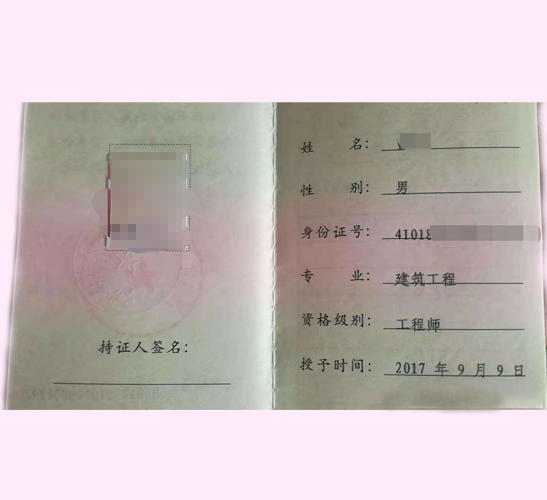 持证人签名:
姓 名:
性 别: 男
身份证号: 41018
专 业: 建筑工程
资格级别: 工程师
授予时间: 2017 年 9 月 9 日